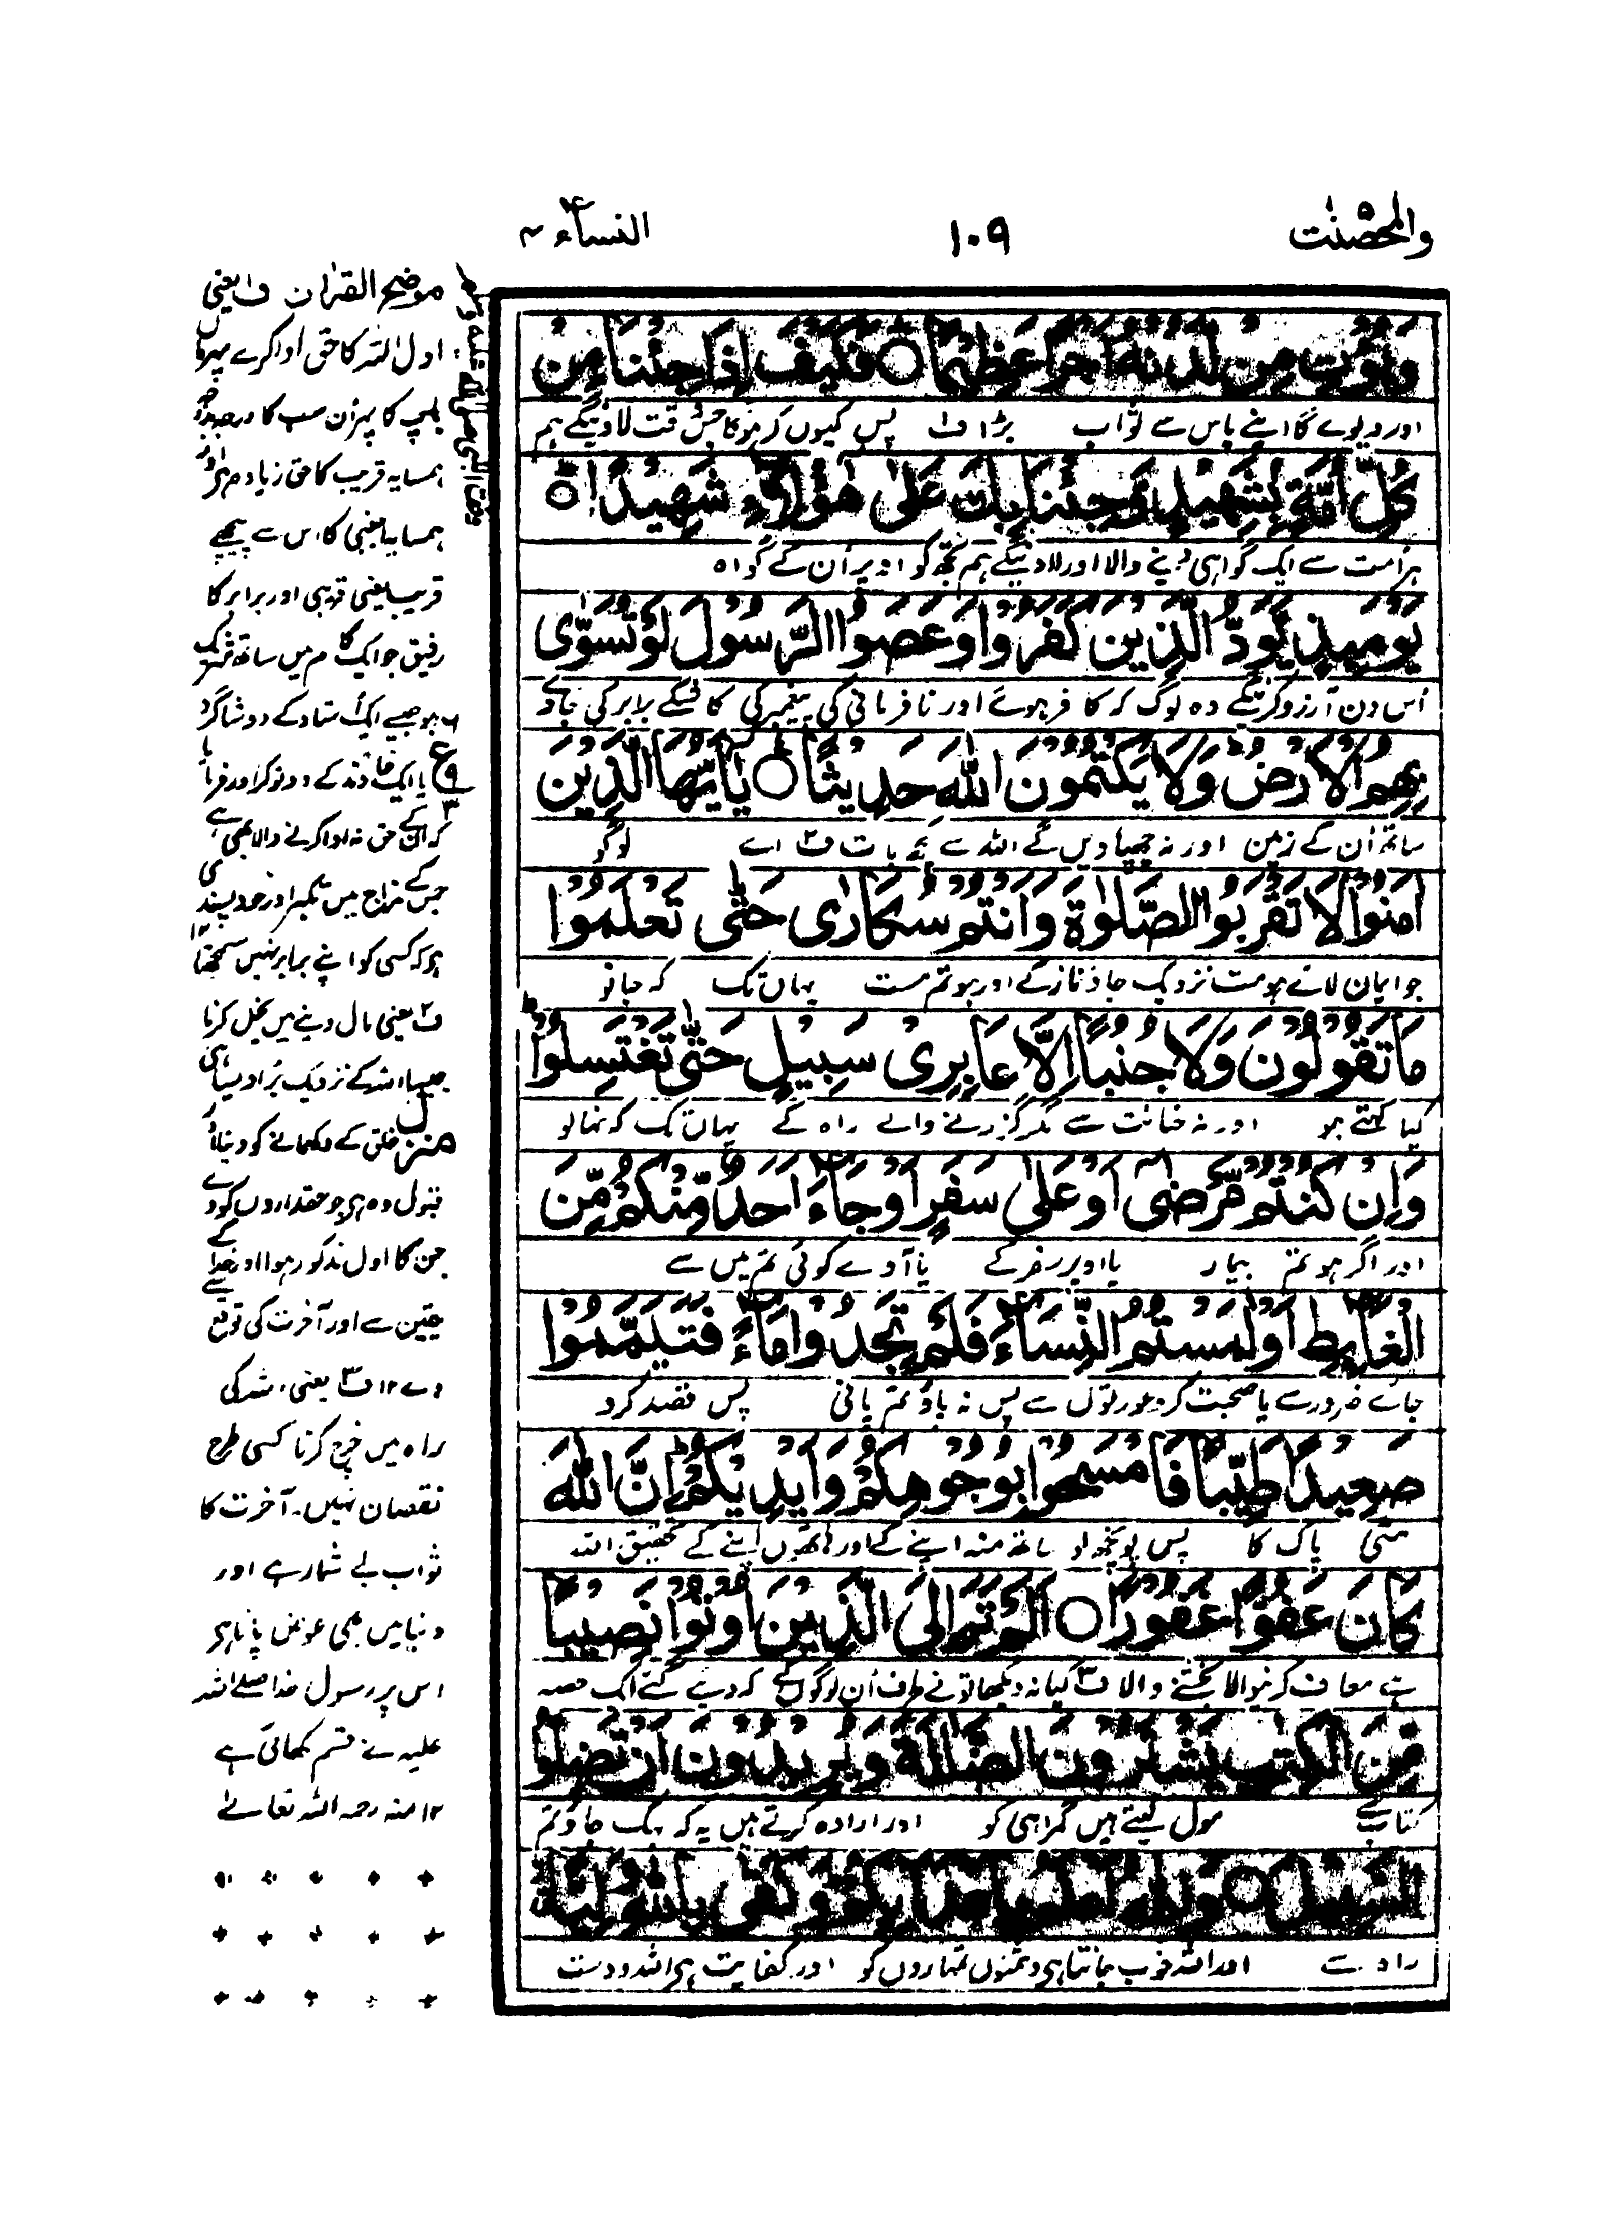 والمحصنٰت ۵
۱۰۹
النساء ۴
وَيُؤْتِ مِنْ لَّدُنْهُ اَجْرًا عَظِيْمًا ○ فَكَيْفَ اِذَا جِئْنَا مِنْ
اور دیوے گا اپنے پاس سے ثواب بڑا ف۱ پس کیوں کر ہوگا جس وقت لاویں گے ہم
كُلِّ اُمَّةٍۭ بِشَهِيْدٍ وَّجِئْنَا بِكَ عَلٰى هٰٓؤُلَآءِ شَهِيْدًا ○
ہر امت سے ایک گواہی دینے والا اور لاویں گے ہم تجھ کو اوپر ان کے گواہ
يَوْمَىِٕذٍ يَّوَدُّ الَّذِيْنَ كَفَرُوْا وَعَصَوُا الرَّسُوْلَ لَوْ تُسَوّٰى
اس دن آرزو کریں گے وہ لوگ کہ کافر ہوئے اور نافرمانی کی پیغمبر کی کاش کے برابر کی جاوے
بِهِمُ الْاَرْضُ وَلَا يَكْتُمُوْنَ اللّٰهَ حَدِيْثًا ○ يٰٓاَيُّهَا الَّذِيْنَ
ساتھ ان کے زمین اور نہ چھپاویں گے اللہ سے کچھ بات ف۲ اے لوگو
اٰمَنُوْا لَا تَقْرَبُوا الصَّلٰوةَ وَاَنْتُمْ سُكَارٰى حَتّٰى تَعْلَمُوْا
جو ایمان لائے ہو مت نزدیک جاؤ نماز کے اور ہو تم مست یہاں تک کہ جانو
مَا تَقُوْلُوْنَ وَلَا جُنُبًا اِلَّا عَابِرِىْ سَبِيْلٍ حَتّٰى تَغْتَسِلُوْا
کیا کہتے ہو اور نہ جنابت سے مگر گزرنے والے راہ کے یہاں تک کہ نہالو
وَاِنْ كُنْتُمْ مَّرْضٰٓى اَوْ عَلٰى سَفَرٍ اَوْ جَآءَ اَحَدٌ مِّنْكُمْ مِّنَ
اور اگر ہو تم بیمار یا اوپر سفر کے یا آوے کوئی تم میں سے
الْغَآىِٕطِ اَوْ لٰمَسْتُمُ النِّسَآءَ فَلَمْ تَجِدُوْا مَآءً فَتَيَمَّمُوْا
جائے ضرور سے یا صحبت کرو عورتوں سے پس نہ پاؤ تم پانی پس قصد کرو
صَعِيْدًا طَيِّبًا فَامْسَحُوْا بِوُجُوْهِكُمْ وَاَيْدِيْكُمْ اِنَّ اللّٰهَ
مٹی پاک کا پس پونچھو ساتھ منہ اپنے کے اور ہاتھوں اپنے کے تحقیق اللہ
كَانَ عَفُوًّا غَفُوْرًا ○ اَلَمْ تَرَ اِلَى الَّذِيْنَ اُوْتُوْا نَصِيْبًا
ہے معاف کرنیوالا بخشنے والا ف۳ کیا نہ دیکھا تو نے طرف ان لوگوں کے کہ دیے گئے ایک حصہ
مِّنَ الْكِتٰبِ يَشْتَرُوْنَ الضَّلٰلَةَ وَيُرِيْدُوْنَ اَنْ تَضِلُّوا
کتاب سے مول لیتے ہیں گمراہی کو اور ارادہ کرتے ہیں یہ کہ بہک جاؤ تم
السَّبِيْلَ ○ وَاللّٰهُ اَعْلَمُ بِاَعْدَآىِٕكُمْ وَكَفٰى بِاللّٰهِ وَلِيًّا
راہ سے اور اللہ خوب جانتا ہے دشمنوں تمہاروں کو اور کفایت ہے اللہ دوست
وقف النبی صلی اللہ علیہ وسلم
موضح القرآن ف۱ یعنی
اول اللہ کا حق ادا کرے پھر ماں
باپ کا پھر ان سب کا درجہ بدرجہ
ہمسایہ قریب کا حق زیادہ ہے اور
ہمسایہ اجنبی کا اس سے پیچھے
قریب یعنی قریبی اور برابر کا
رفیق جو ایک کام میں ساتھ شریک
ہو جیسے ایک استاد کے دو شاگرد
یا ایک خاوند کے دو نوکر اور فرمایا
کہ ان کے حق نہ ادا کرنے والا بھی ہے
جس کے مزاج میں تکبر اور خود پسندی
ہو کہ کسی کو اپنے برابر نہیں سمجھتا ۱۲
ف۲ یعنی مال دینے میں بخل کرنا
جیسا اللہ کے نزدیک برا ویسا ہی
خلق کے دکھانے کو دینا اور
منزل
قبول وہ ہے جو حقداروں کو دے
جن کا اول مذکور ہوا اور خدا کے
یقین سے اور آخرت کی توقع سے
دے ۱۲ ف۳ یعنی اللہ کی
راہ میں خرچ کرنا کسی طرح
نقصان نہیں۔ آخرت کا
ثواب بے شمار ہے اور
دنیا میں بھی عوض پاتا ہے
اس پر رسول خدا صلے اللہ
علیہ نے قسم کھائی ہے
۱۲ منہ رحمہ اللہ تعالےٰ